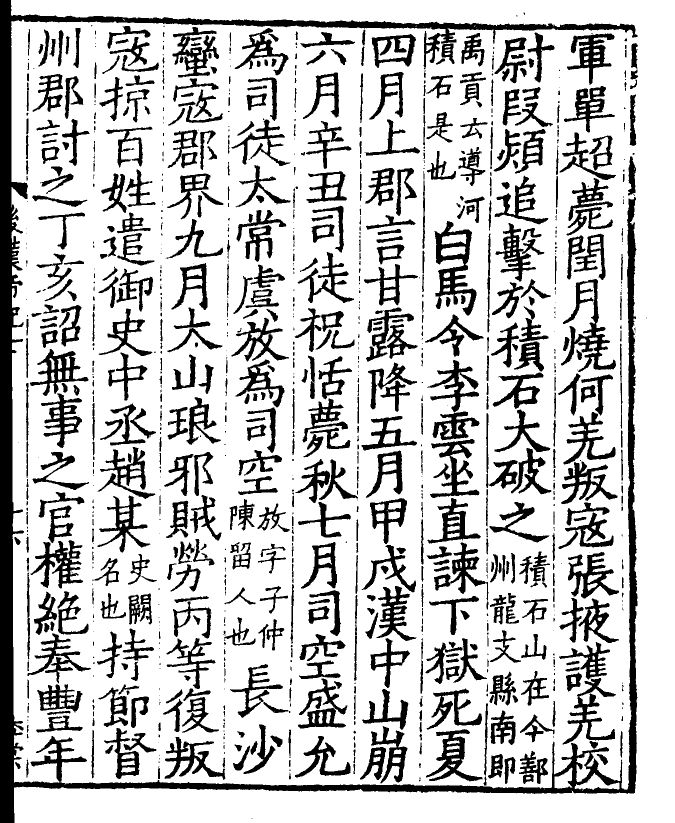 軍單超薨閏月燒何羌叛寇張掖護羌校
尉段熲追擊於積石大破之積石山在今鄯州龍支縣南即
禹貢云導河積石是也白馬令李雲坐直諫下獄死夏
四月上郡言甘露降五月甲戌漢中山崩
六月辛丑司徒祝恬薨秋七月司空盛允
爲司徒太常虞放爲司空放字子仲陳留人也長沙
蠻寇郡界九月太山琅邪賊勞丙等復叛
寇掠百姓遣御史中丞趙某史闕名也持節督
州郡討之丁亥詔無事之官權絕奉豐年